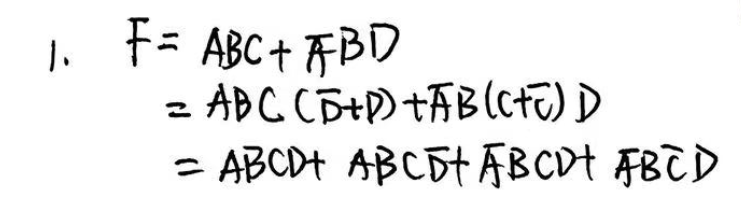 1. F = ABC + A̅BD
= ABC(D̅+D)+A̅B(C+C̅)D
= ABCD+ ABCD̅+ A̅BCD+ A̅BC̅D